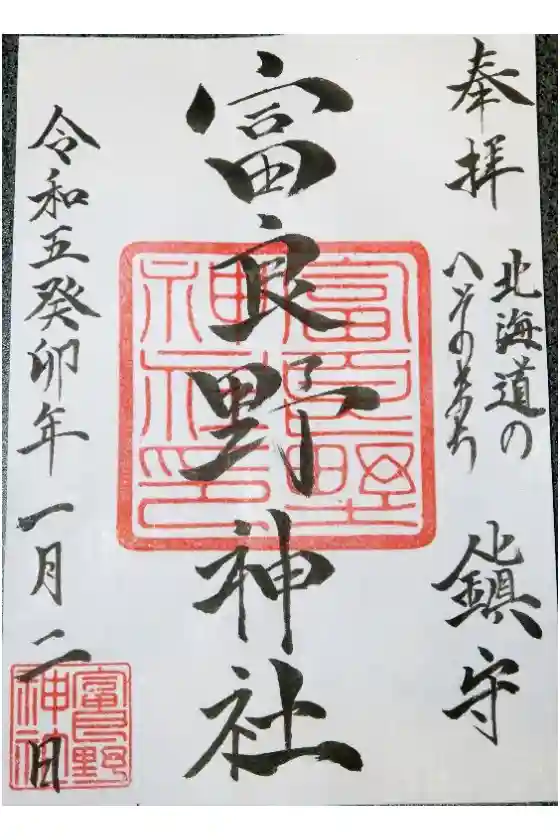 奉拝
北海道の
へそのまち
鎮守
富良野神社
富良野
神社印
令和五癸卯年一月二日
富良野
神社